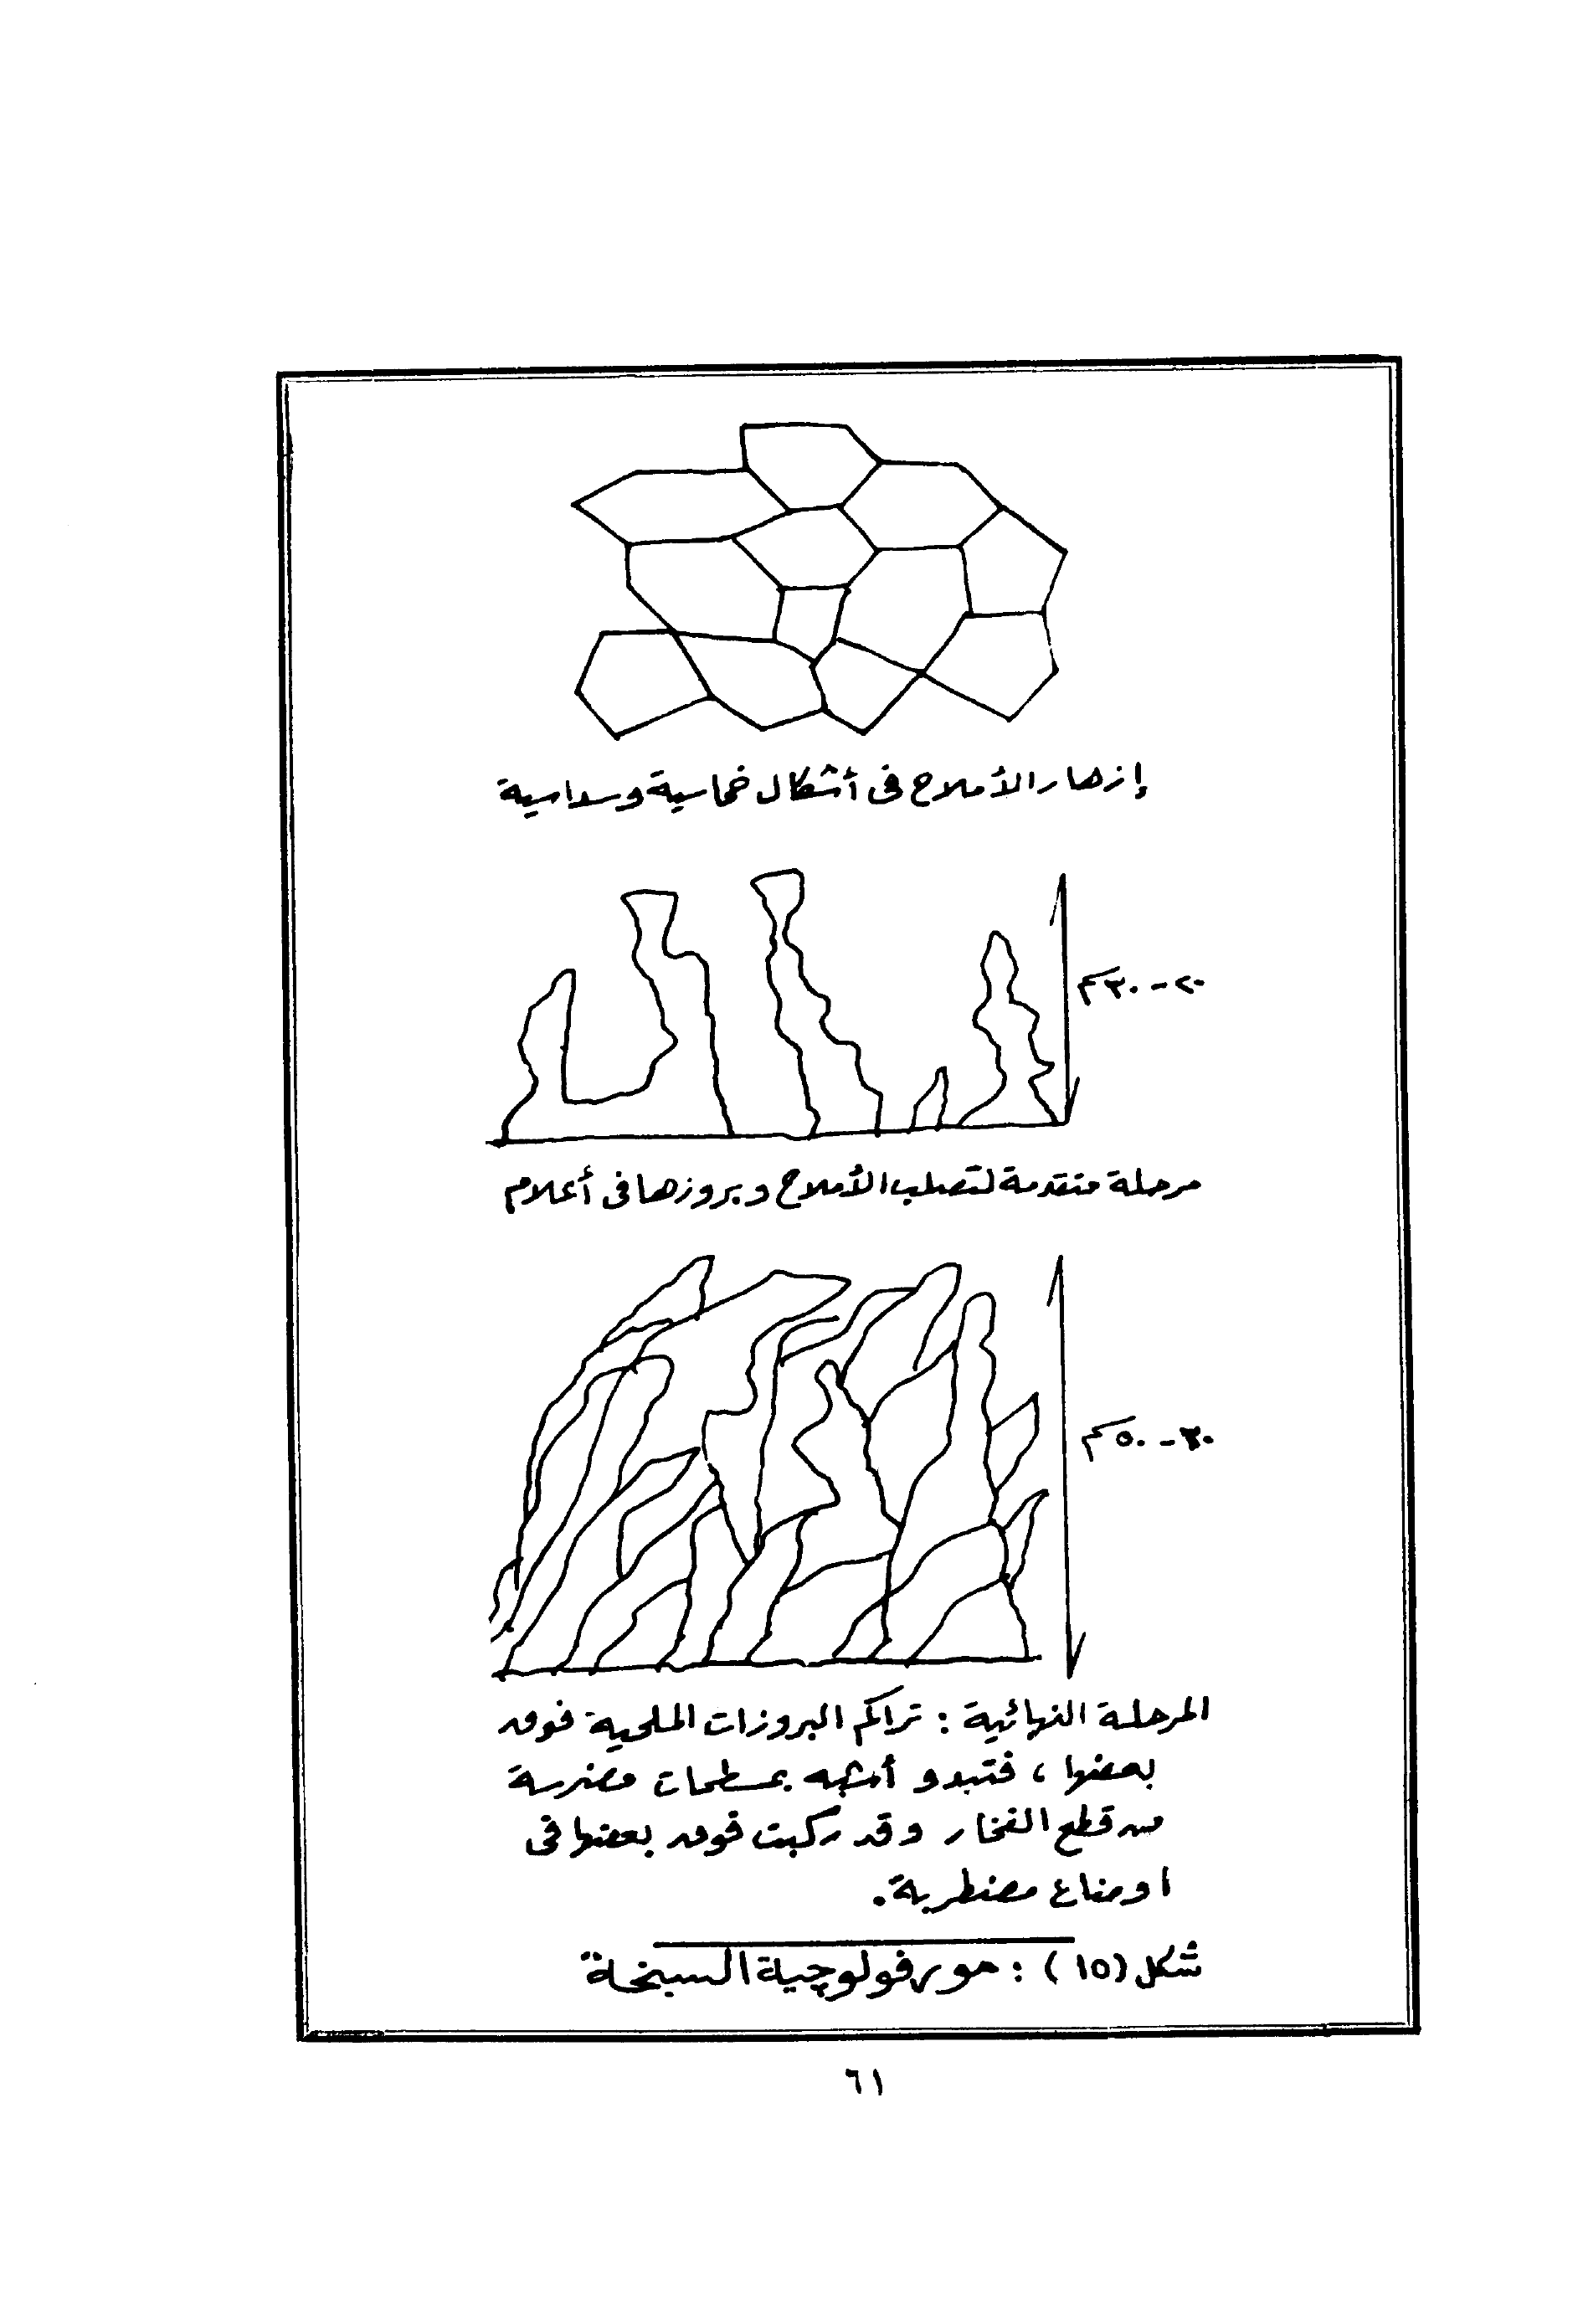 إزهار الأملاح فى أشكال خماسية وسداسية
٢٠ - ٣٠ سم
مرحلة متقدمة لتصلب الأملاح وبروزها فى أعلام
٣٠ - ٥٠ سم
المرحلة النهائية : تراكم البروزات الملحية فوق
بعضها ، فتبدو أشبه بمسطحات مضرسة
من قطع الفخار وقد ركبت فوق بعضها فى
اوضاع مضطربة .
شكل (١٥) : مورفولوچية السبخة
٦١